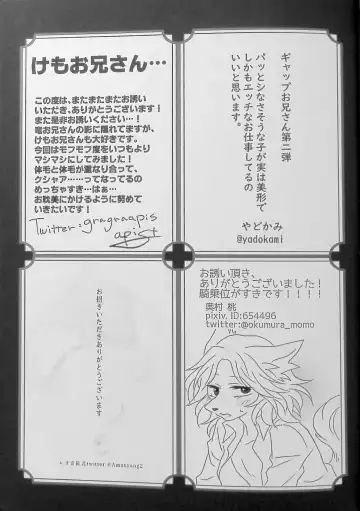 けもお兄さん…
この度は、またまたまたお誘い
いただき、ありがとうございます！
また是非お誘いください…！
竜お兄さんの影に隠れてますが、
けもお兄さんも大好きです。
今回はモフモフ度をいつもより
マシマシにしてみました！
体毛と体毛が重なり合って、
クシャァ……ってなってるの
めっちゃすき…はぁ…
お耽美にかけるように努めて
いきたいです！
Twitter:gragraapis
apist
ギャップお兄さん第二弾
パッとシなさそうな子が実は美形で
しかもエッチなお仕事してるの
いいと思います。
やどかみ
@yadokami
お招きいただきありがとうございます
お誘い頂き、
ありがとうございました！
騎乗位がすきです！！！！
奥村 桃
pixiv. ID:654496
twitter:@okumura_momo